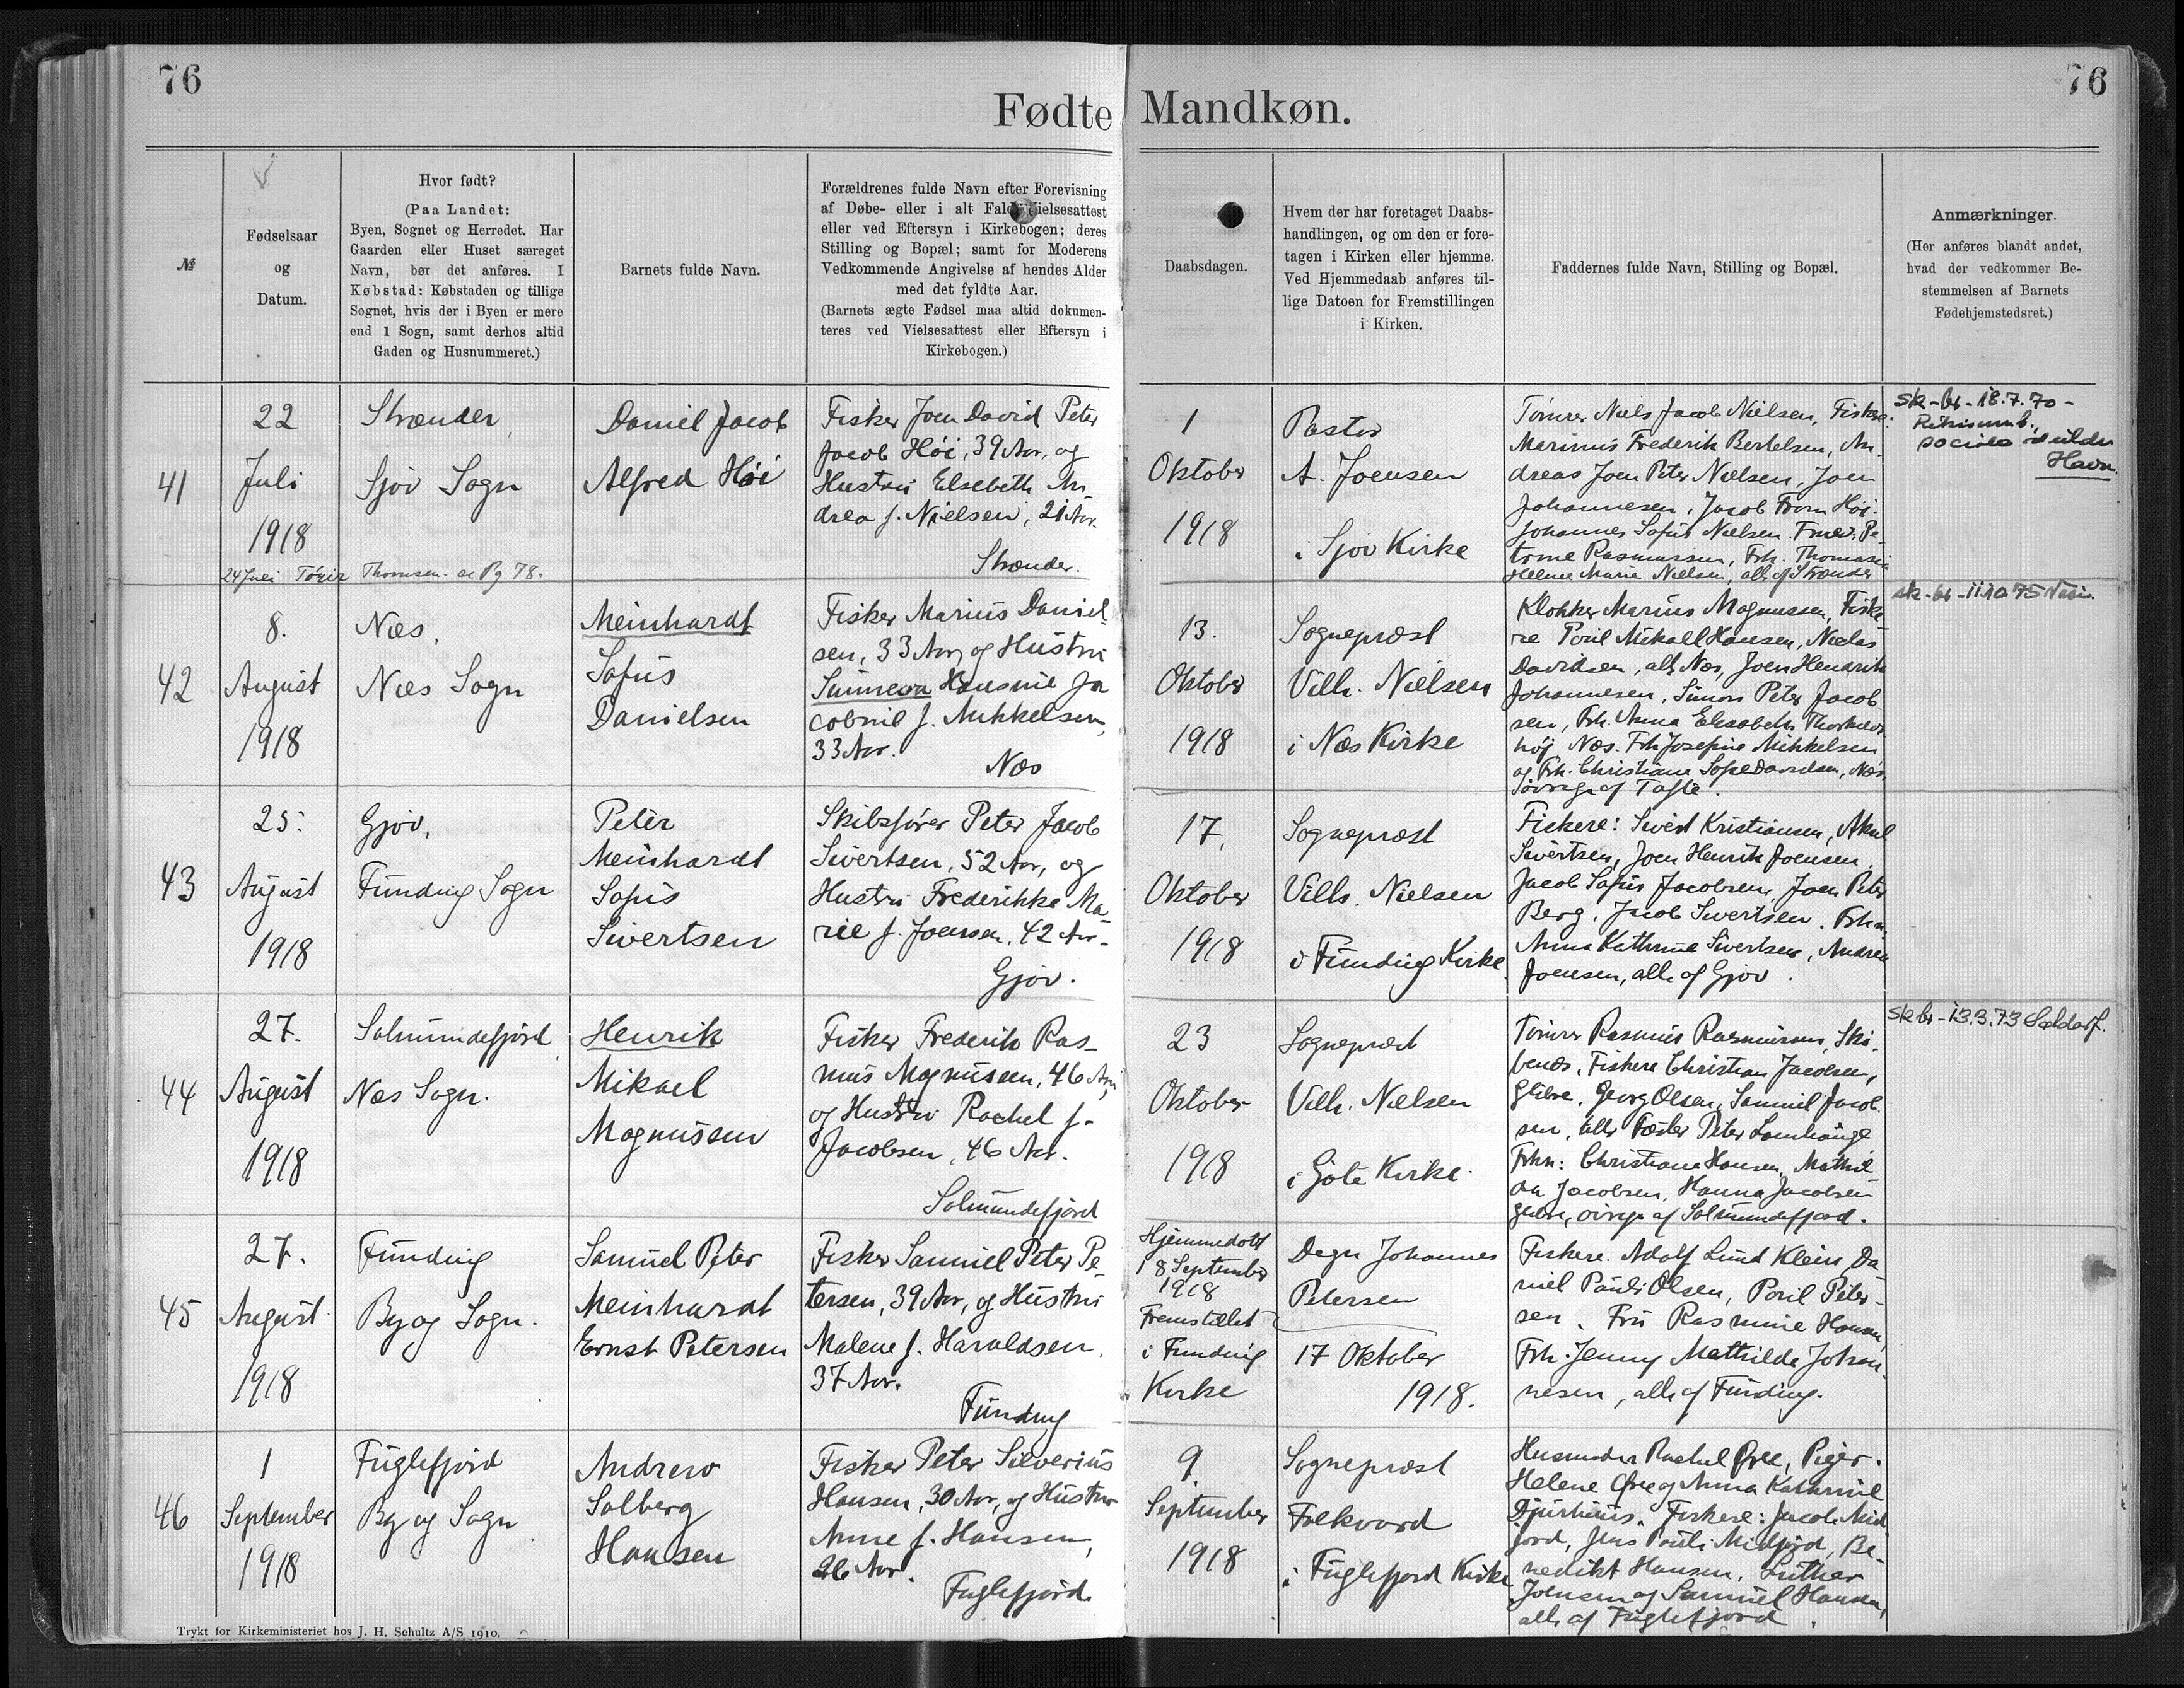 76
76
Fødte Mandkøn.
№
Fødselsaar
og
Datum.
Hvor født?
(Paa Landet:
Byen, Sognet og Herredet. Har
Gaarden eller Huset særeget
Navn, bør det anføres. I
Købstad: Købstaden og tillige
Sognet, hvis der i Byen er mere
end 1 Sogn, samt derhos altid
Gaden og Husnummeret.)
Barnets fulde Navn.
Forældrenes fulde Navn efter Forevisning
af Døbe- eller i alt Fald Vielsesattest
eller ved Eftersyn i Kirkebogen; deres
Stilling og Bopæl; samt for Moderens
Vedkommende Angivelse af hendes Alder
med det fyldte Aar.
(Barnets ægte Fødsel maa altid dokumen-
teres ved Vielsesattest eller Eftersyn i
Kirkebogen.)
Daabsdagen.
Hvem der har foretaget Daabs-
handlingen, og om den er fore-
tagen i Kirken eller hjemme.
Ved Hjemmedaab anføres til-
lige Datoen for Fremstillingen
i Kirken.
Faddernes fulde Navn, Stilling og Bopæl.
Anmærkninger.
(Her anføres blandt andet,
hvad der vedkommer Be-
stemmelsen af Barnets
Fødehjemstedsret.)
41
22
Juli
1918
Strænder,
Sjov Sogn
Daniel Jacob
Alfred Høi
Fisker Joen David Peter
Jacob Høi, 39 Aar, og
Hustru Elsebeth An
drea f. Nielsen, 21 Aar.
Strænder.
1
Oktober
1918
Pastor
A. Joensen
i Sjov Kirke
Tømrer Niels Jacob Nielsen, Fiskere:
Marinus Frederik Bertelsen, An
dreas Joen Peter Nielsen, Joen
Johannesen, Jacob From Høj.
Johannes Sofus Nielsen. Fruer: Pe-
trine Rasmussen, Frk. Thomasia
Helene Marie Nielsen, alle af Strænder
sk-br-18.7.70-
Havn.
24 Juli Thomsen. se Pg 78.
42
8.
August
1918
Næs,
Næs Sogn
Meinhardt
Sofus
Danielsen
Fisker Marius Daniel
sen, 33 Aar, og Hustru
Sunneva Hansine Ja
cobine f. Mikkelsen,
33 Aar.
Næs
13.
Oktober
1918
Sognepræst
Vilh. Nielsen
i Næs Kirke
Klokker Marius Magnussen, Fiske
re Poul Mikael Hansen, Niclas
Davidsen, alle Næs, Joen Hendrik
Johannesen, Simon Peter Jacob
sen, Frk. Anna Elisabeth
høj Næs. Frk Josefine Mikkelsen
og Frk. Christiane Sofie Davidsen, Næs
øvrige af Tofte.
sk-br-11.10.75 Nesi.
43
25.
August
1918
Gjov,
Funding Sogn
Peter
Meinhardt
Sofus
Sivertsen
Skibsfører Peter Jacob
Sivertsen, 52 Aar, og
Hustru Frederikke Ma
rie f. Joensen, 42 Aar.
Gjov.
17.
Oktober
1918
Sognepræst
Vilh. Nielsen
i Funding Kirke
Fiskere: Sivert Kristiansen, Aksel
Sivertsen, Joen Henrik Joensen.
Jacob Sofus Jacobsen, Joen Peter
Berg, Jacob Sivertsen. Frkn.
Anna Kathrine Sivertsen, Andrea
Joensen, alle af Gjov.
44
27.
August
1918
Salmundefjord
Næs Sogn.
Henrik
Mikael
Magnussen
Fisker Frederik Ras-
mus Magnussen, 46 Aar,
og Hustru Rachel f.
Jacobsen, 46 Aar.
Salmundefjord
23
Oktober
1918
Sognepræst
Vilh. Nielsen
i Gøte Kirke.
Tømrer Rasmus Rasmussen, Ski-
benæs, Fiskere Christian Jacobsen,
Glibre, Georg Olsen, Samuel Jacob
sen, alle Fæster Peter Lamhauge
Frkn: Christiane Hansen, Mathil
da Jacobsen, Hanna Jacobsen
Glibre, øvrige af Salmundefjord.
sk br-13.3.73 Saldarf.
45
27.
August
1918
Funding
By og Sogn.
Samuel Peter
Meinhardt
Ernst Petersen
Fisker Samuel Peter Pe-
tersen, 39 Aar, og Hustru
Malene f. Haraldsen,
37 Aar.
Funding
Hjemmedøbt
18 September
1918
Fremstillet
i Funding
Kirke
Degn Johannes
Petersen
17 Oktober
1918.
Fiskere. Adolf Lund Klein, Da
niel Pauli Olsen, Poul Peter-
sen, Fru Rasmine Hansen,
Frk. Jenny Mathilde Johan-
nesen, alle af Funding.
46
1
September
1918
Fuglefjord
By og Sogn
Andrew
Solberg
Hansen
Fisker Peter Silverius
Hansen, 30 Aar, og Hustru
Anne f. Hansen,
26 Aar.
Fuglefjord.
9
September
1918
Sognepræst
Falkvard
i Fuglefjord Kirke
Husmoder Rachel Øree, Piger.
Helene Øree og Anna Kathrine
Djurhuus. Fiskere: Jacob Mid
fjord, Jens Pauli Midfjord, Be-
nedikt Hansen, Luther
Joensen og Samuel Hansen,
alle af Fuglefjord.
Trykt for Kirkeministeriet hos J. H. Schultz A/S 1910.